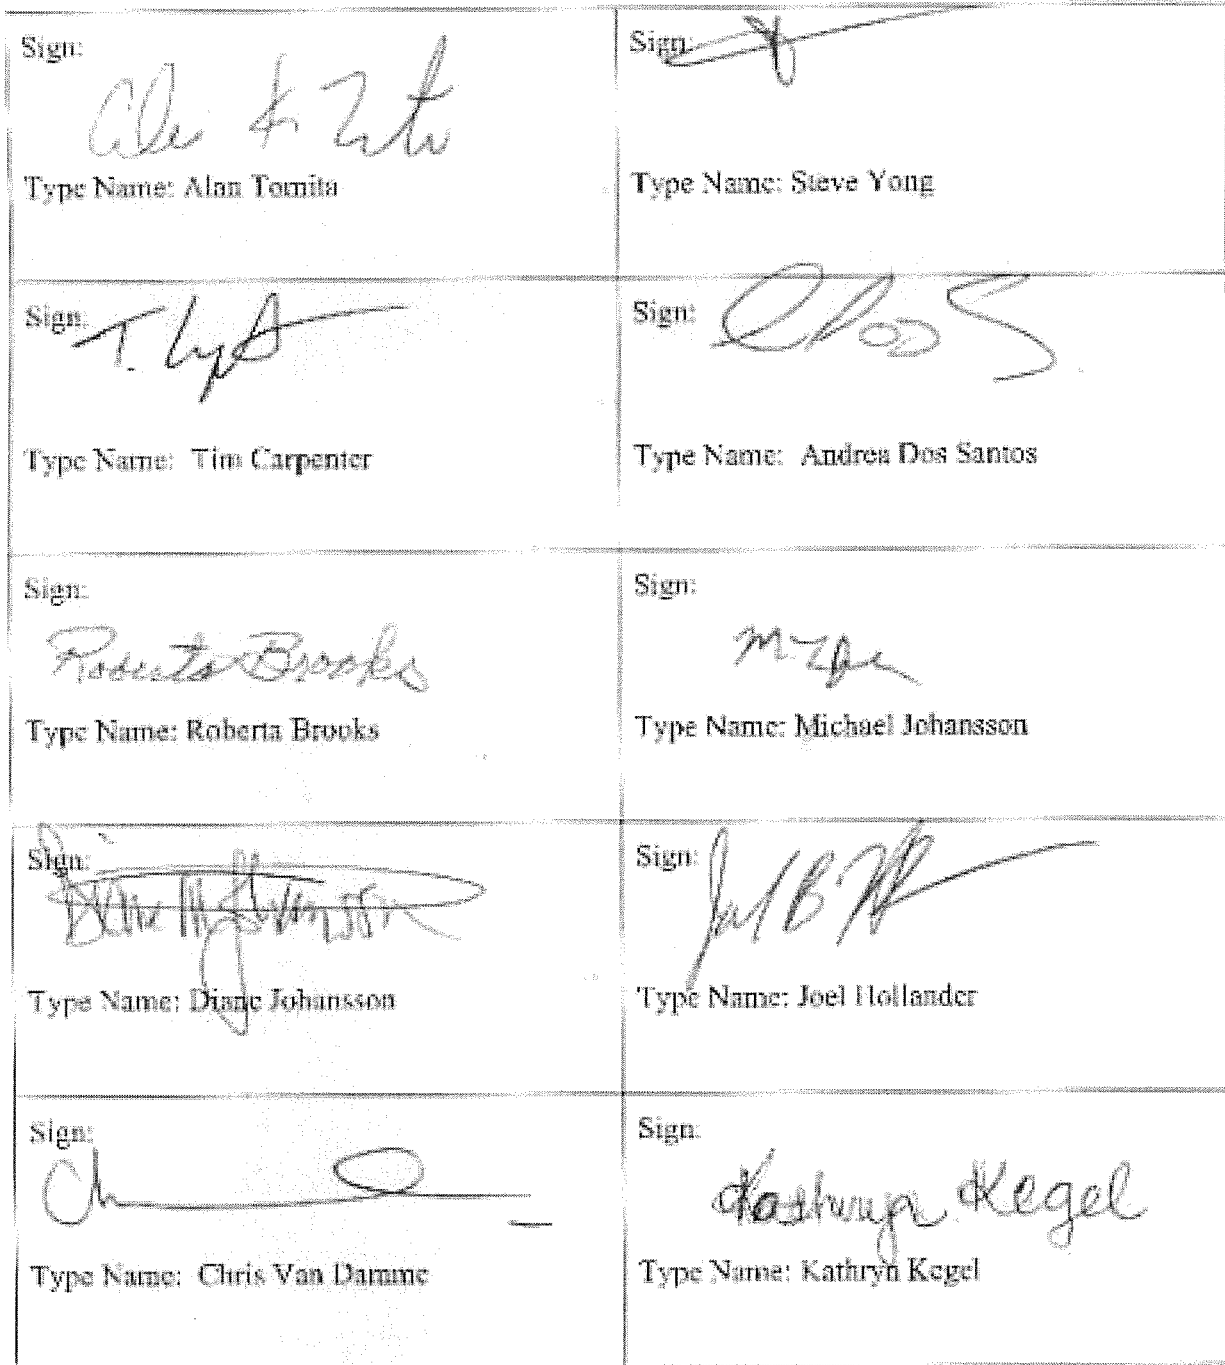 Sign:
Type Name: Alan Tomita
Sign:
Type Name: Steve Yong
Sign:
Type Name: Tim Carpenter
Sign:
Type Name: Andrea Dos Santos
Sign:
Roberta Brooks
Type Name: Roberta Brooks
Sign:
Type Name: Michael Johansson
Sign:
Type Name: Diane Johansson
Sign:
Type Name: Joel Hollander
Sign:
Type Name: Chris Van Damme
Sign:
Kathryn Kegel
Type Name: Kathryn Kegel